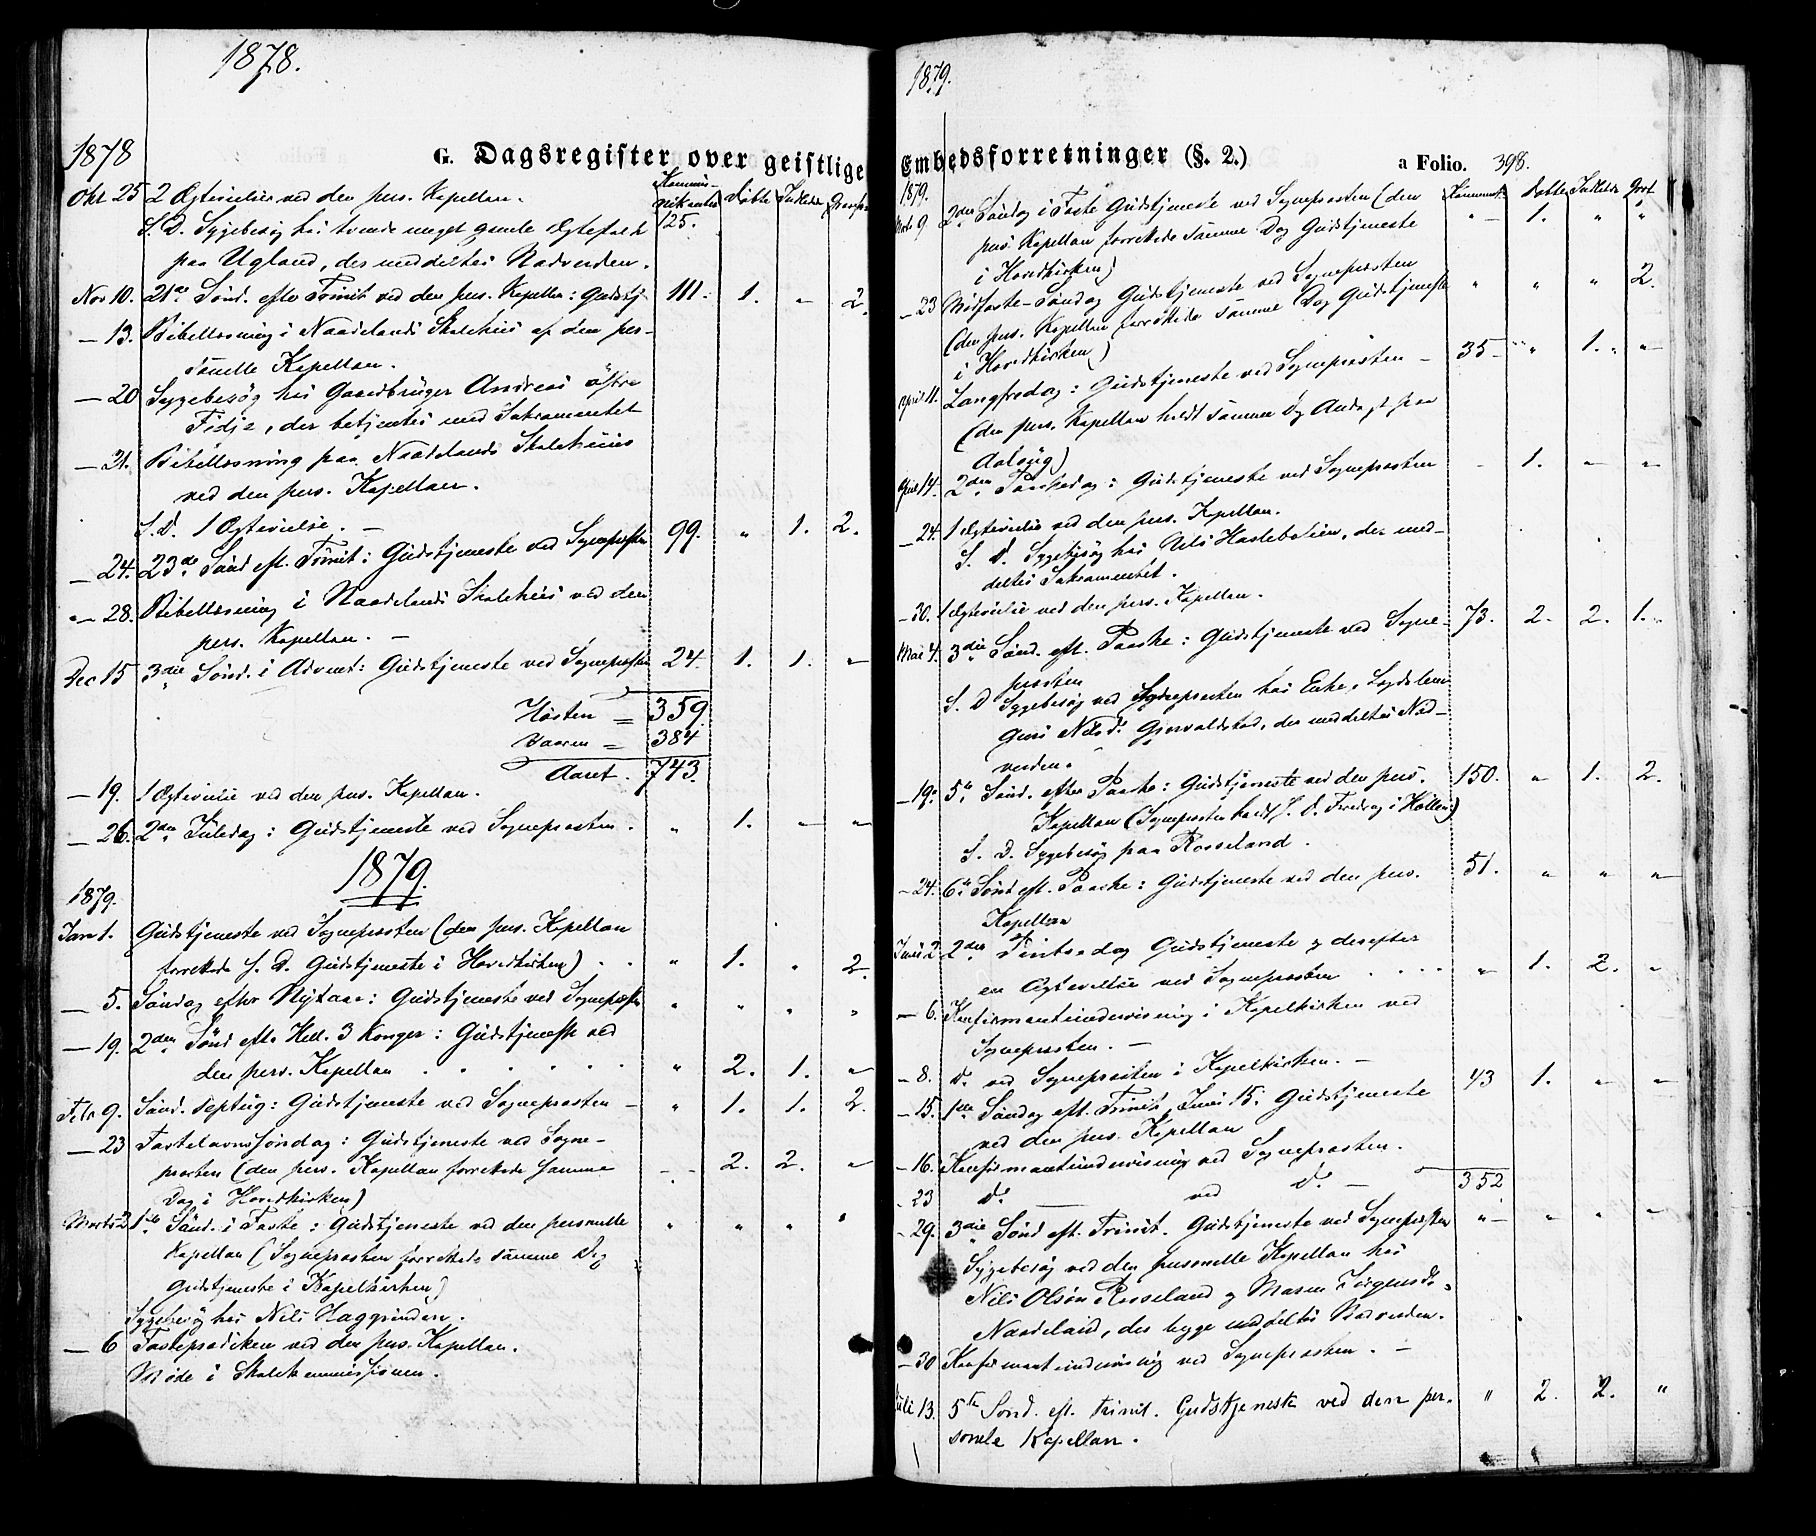 1878.
1878
G. Dagsregister over geistlige
Kommu- Döbte Indledede
nikanter
Okt 25 2 Ægtevielser ved den pers. Kapellan. 125.
S. D. Sygebesøg hos tvende meget gamle Ægtefolk
paa Ugland, der meddeltes Nadverden.
Nov 10. 21de Sönd. efter Trinit ved den pers. Kapellan: Gudstj 111. 1. „ 2.
— 13. Bibellæsning i Naadelands Skolehus af den per-
sonelle Kapellan.
— 20 Sygebesög hos Gaardbruger Andreas östre
Fidje, der betjentes med Sakramentet
— 21. Bibellæsning paa Naadelands Skolehuus
ved den pers. Kapellan.
S. D. 1 Ægtevielse. —
— 24. 23de Sönd eft. Trinit: Gudstjeneste ved Sognepræsten 99. „ 1. 2.
— 28. Bibellæsning i Naadelands Skolehus ved den
pers. Kapellan. —
Dec 15 3die Sönd. i Advent: Gudstjeneste ved Sognepræsten 24. 1. 1. „
Hösten = 359.
Vaaren = 384
Aaret. 743.
— 19. 1 Ægtevielse ved den pers. Kapellan.
— 26. 2den Juledag: Gudstjeneste ved Sognepræsten. „ 1. „ „
1879.
1879.
Jan 1. Gudstjeneste ved Sognepræsten (den pers. Kapellan
forrettede S. D. Gudstjeneste i Hovedkirken) . . „ 1. „ 2.
— 5. Söndag efter Nytaar: Gudstjeneste ved Sognepræsten „ „ „ „
— 19. 2den Sönd eft. Hell. 3 Konger: Gudstjeneste ved
den pers. Kapellan . . . . . . „ 2. 1. „
Febr 9. Sönd. Septug: Gudstjeneste ved Sognepræsten — „ 1. 1. 2.
— 23 Fastelavnssöndag: Gudstjeneste ved Sogne-
præsten (den pers. Kapellan forrettede samme — 2. 2. „
Dag i Hovedkirken)
Marts 2 1ste Sönd. i Faste: Gudstjeneste ved den personelle „ „ „ „
Kapellan (Sognepræsten forrettede samme Dag
Gudstjeneste i Kapelkirken)
Sygebesög hos Nils Haggrinden.
— 6 Fasteprædiken ved den pers. Kapellan.
Möde i Skolekommissionen.
1879.
Embedsforretninger (§. 2.)
a Folio. 398.
1879. Kommunik. Döbte Indledde Grav
Marts 9 2den Söndag i Faste Gudstjeneste ved Sognepræsten (den „ 1. „ „
pers. Kapellan forrettede samme Dag Gudstjeneste
i Hovedkirken)
— 23 Midfaste-Söndag Gudstjeneste ved Sognepræsten „ „ „ 2.
(den pers. Kapellan forrettede samme Dag Gudstjeneste
i Hovedkirken)
April 11. Langfredag: Gudstjeneste ved Sognepræsten — 35 „ 1. „
(den pers. Kapellan holdt samme Dag Andagt paa
)
April 14. 2den Paaskedag: Gudstjeneste ved Sognepræsten — 1. „ „
— 24. 1 Ægtevielse ved den pers. Kapellan.
S. D. Sygebesög hos Nils , der med-
deltes Sakramentet.
— 30. 1 Ægtevielse ved den pers. Kapellan.
Mai 4. 3die Sönd. eft. Paaske: Gudstjeneste ved Sogne- 73. 2. 2. 1.
præsten
S. D Sygebesög ved Sognepræsten hos Enke,
Nilsd. , der meddeltes Nad-
verden.
— 19. 5te Sönd. efter Paaske: Gudstjeneste ved den pers. 150. „ 1. 2.
Kapellan (Sognepræsten holdt S. D. i )
S. D. Sygebesög paa Rosseland.
— 24. 6te Sönd eft. Paaske: Gudstjeneste ved den pers. 51. „ „ „
Kapellan
Juni 2. 2den Pintsedag Gudstjeneste og derefter
en Ægtevielse ved Sognepræsten . . . . „ 1. 2. „
— 6. Konfirmantundervisning i Kapelkirken ved
Sognepræsten. —
— 8. do. ved Sognepræsten i Kapelkirken. —
— 15. 1ste Söndag eft. Trinit, Juni 15. Gudstjeneste 43 1. „ „
ved den pers. Kapellan
— 16. Konfirmantundervisning ved Sognepræsten.
— 23 do. — ved do. — 352
— 29. 3die Sönd eft. Trinit. Gudstjeneste ved Sognepræsten „ „ „ „
Sygebesög ved den personelle Kapellan hos
Nils Olsön Rosseland og Maren Jörgensd.
Naadeland, der begge meddeltes Nadverden.
— 30 Konfirmantundervisning ved Sognepræsten. —
Juli 13. 5te Sönd. eft. Trinit. Gudstjeneste ved den per- „ 2. 2. „
sonele Kapellan.